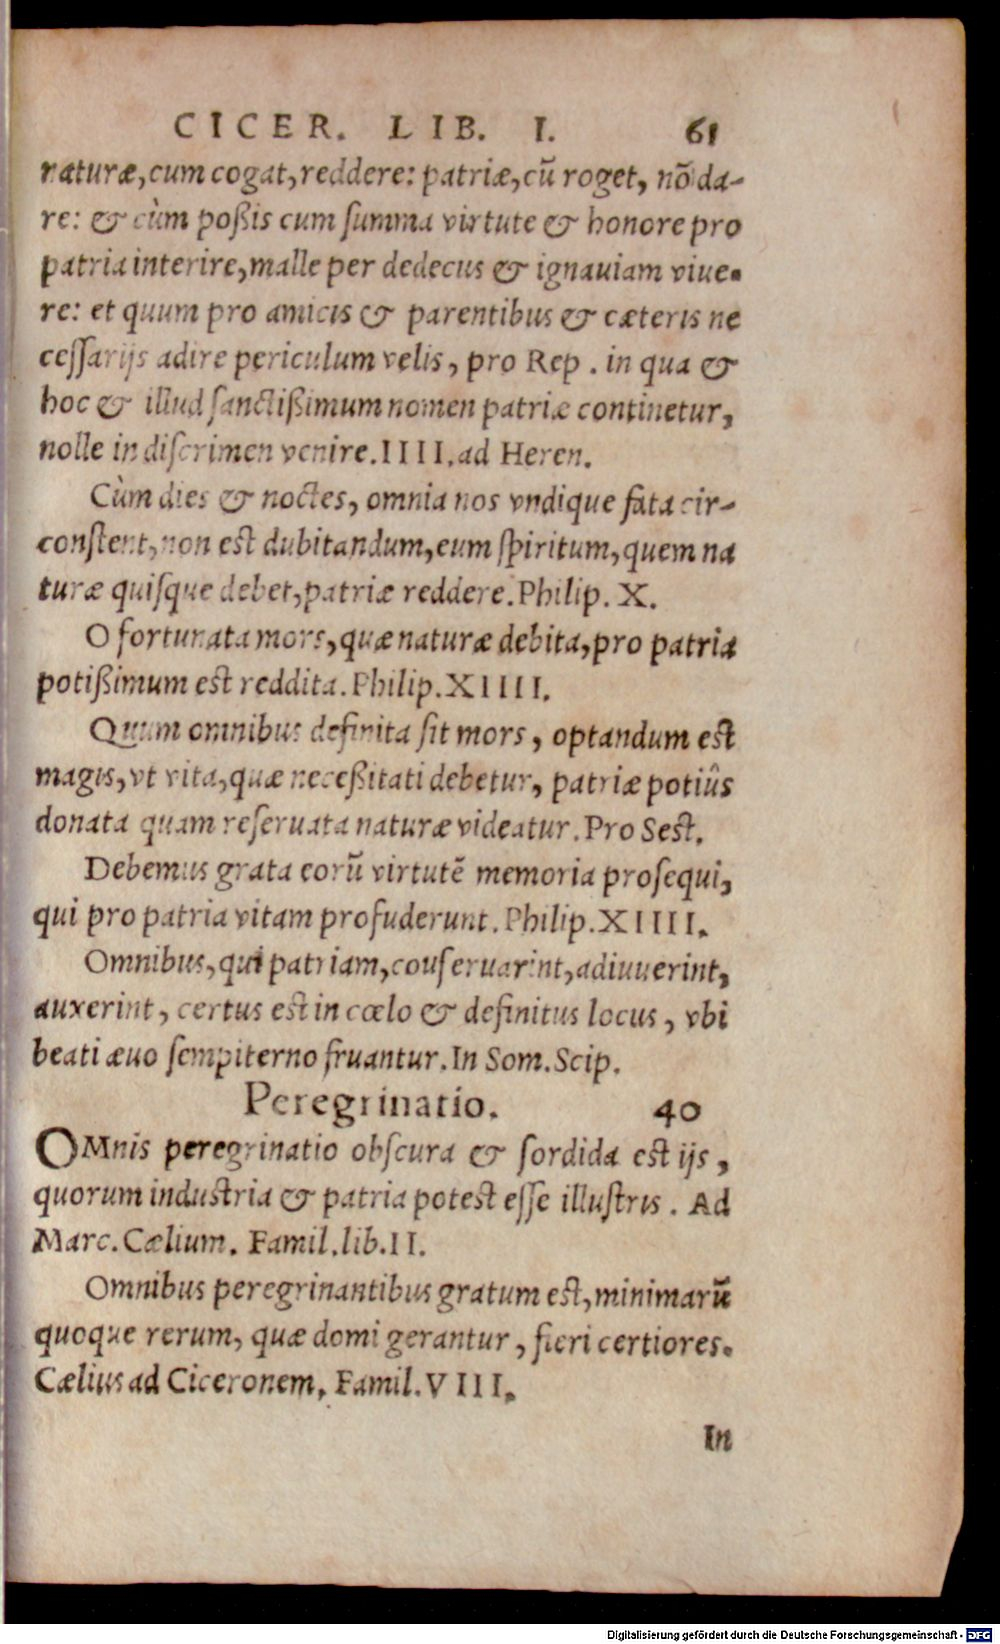 CICER. LIB. I. 61
naturæ, cum cogat, reddere: patriæ, cū roget, nō da-
re: & cùm poßis cum ſumma virtute & honore pro
patria interire, malle per dedecus & ignauiam viue-
re: et quum pro amicis & parentibus & cæteris ne
ceſſarijs adire periculum velis, pro Rep. in qua &
hoc & illud ſanctißimum nomen patriæ continetur,
nolle in diſcrimen venire. IIII. ad Heren.
Cùm dies & noctes, omnia nos vndique fata cir-
conſtent, non est dubitandum, eum ſpiritum, quem na
turæ quiſque debet, patriæ reddere. Philip. X.
O fortunata mors, quæ naturæ debita, pro patria
potißimum est reddita. Philip. XIIII.
Quum omnibus definita ſit mors, optandum est
magis, vt vita, quæ neceßitati debetur, patriæ potiûs
donata quam reſeruata naturæ videatur. Pro Sest.
Debemus grata eorū virtutē memoria proſequi,
qui pro patria vitam profuderunt. Philip. XIIII.
Omnibus, qui patriam, couſeruarint, adiuuerint,
auxerint, certus est in cœlo & definitus locus, vbi
beati æuo ſempiterno fruantur. In Som. Scip.
Peregrinatio. 40
OMnis peregrinatio obſcura & ſordida est ijs,
quorum industria & patria potest eſſe illuſtris. Ad
Marc. Cælium. Famil. lib. II.
Omnibus peregrinantibus gratum est, minimarū
quoque rerum, quæ domi gerantur, fieri certiores.
Cælius ad Ciceronem, Famil. VIII.
In
Digitalisierung gefördert durch die Deutsche Forschungsgemeinschaft - DFG